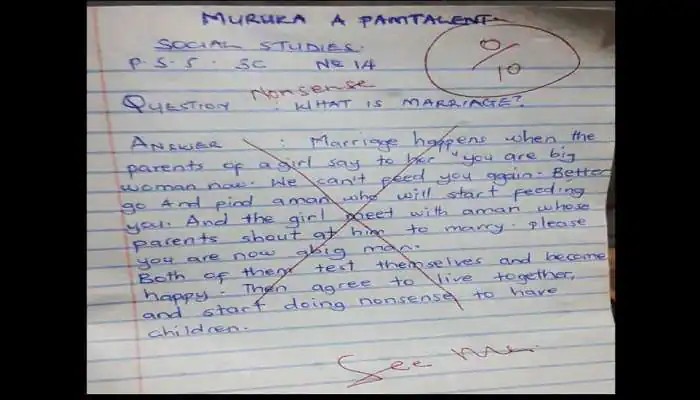 MURUKA A PAMTALENT.
SOCIAL STUDIES.
P.S.S. SC № 14
0/10
Nonsense
QUESTION : WHAT IS MARRIAGE?
ANSWER : Marriage happens when the
parents of a girl say to her "you are big
woman now. We can't feed you again. Better
go And find aman who will start feeding
you. And the girl meet with aman whose
parents shout at him to marry. please
you are now abig man.
Both of them test themselves and become
happy. Then agree to live together,
and start doing nonsense to have
children.
See Me.